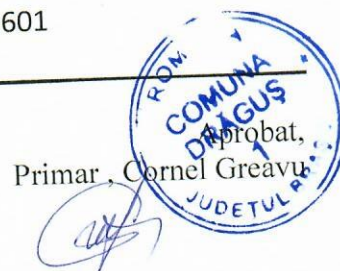 601
ROM
COMUNA
DRĂGUȘ
1
JUDEȚUL
Aprobat,
Primar , Cornel Greavu